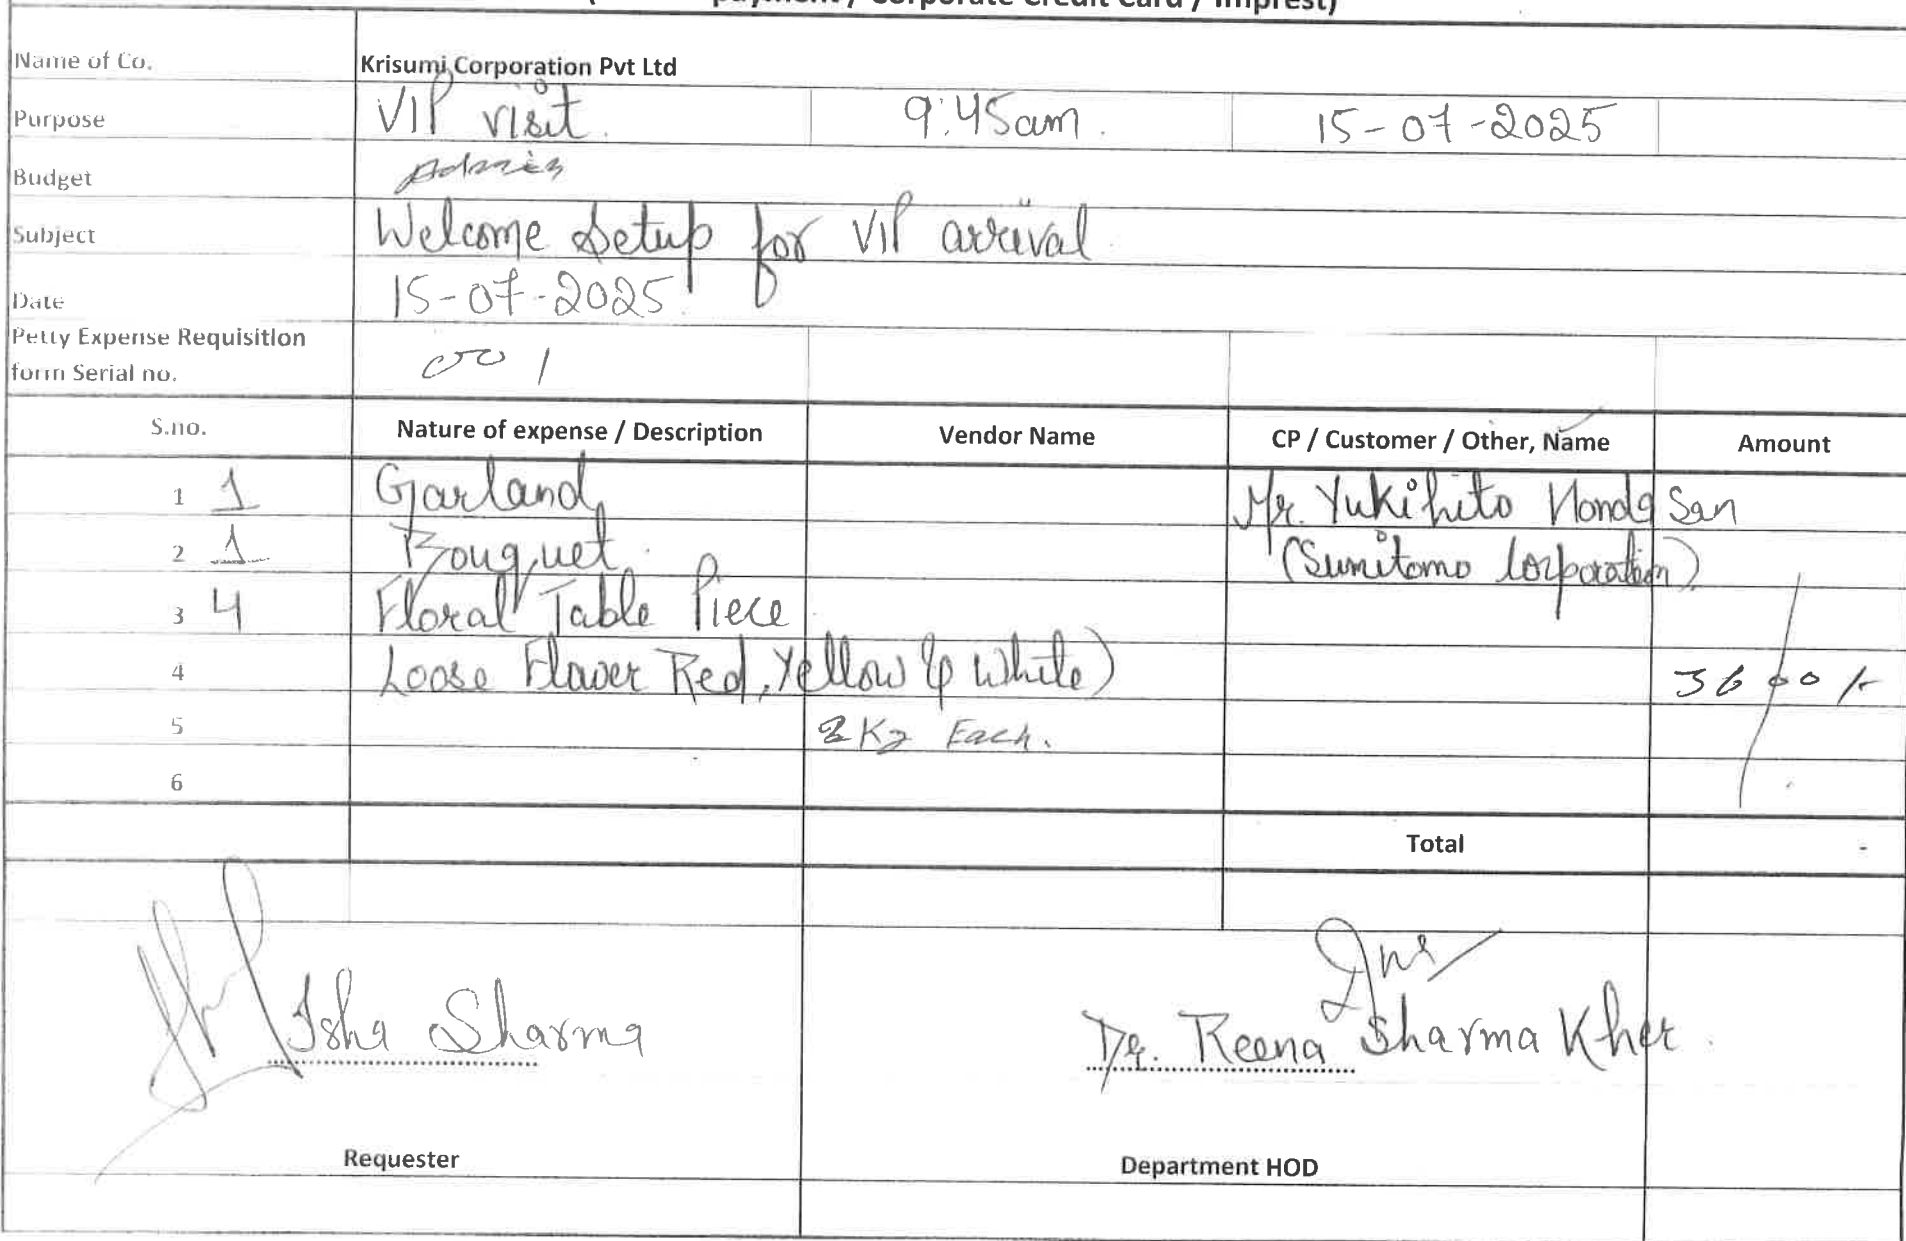 payment / Corporate Credit Card / Imprest)
Name of Co. Krisumi Corporation Pvt Ltd
Purpose VIP visit. 9:45am. 15-07-2025
Budget Admin
Subject Welcome Setup for VIP arrival
Date 15-07-2025
Petty Expense Requisition
form Serial no. 001
S.no. Nature of expense / Description Vendor Name CP / Customer / Other, Name Amount
1 1 Garland Mr. Yukihito Honda San
2 1 Bouquet. (Sumitomo Corporation)
3 4 Floral Table Piece
4 Loose Flower Red, Yellow & White) 3600/-
5 2Kg Each.
6
Total -
Isha Sharma Dr. Reena Sharma Kher.
Requester Department HOD